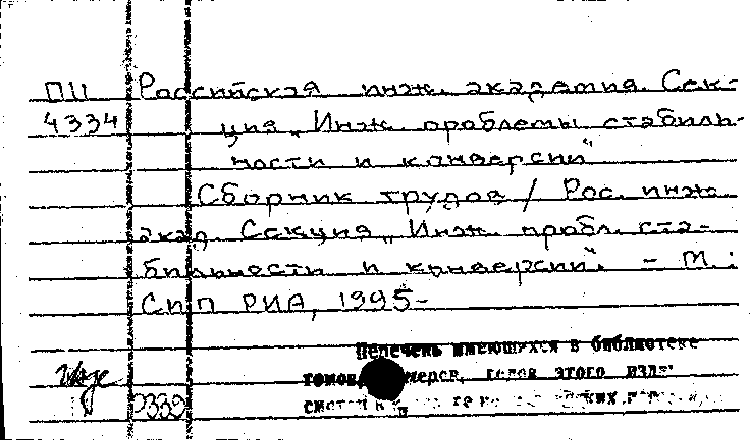 ПЦ Российская инж. академия. Сек-
4334 ция „Инж. проблемы стабиль-
ности и конверсии"
Сборник трудов / Рос. инж.
акад. Секция „Инж. пробл. ста-
бильности и конверсии". - М. :
СИП РИА, 1995-
Перечень имеющихся в библиотеке
томов, этого